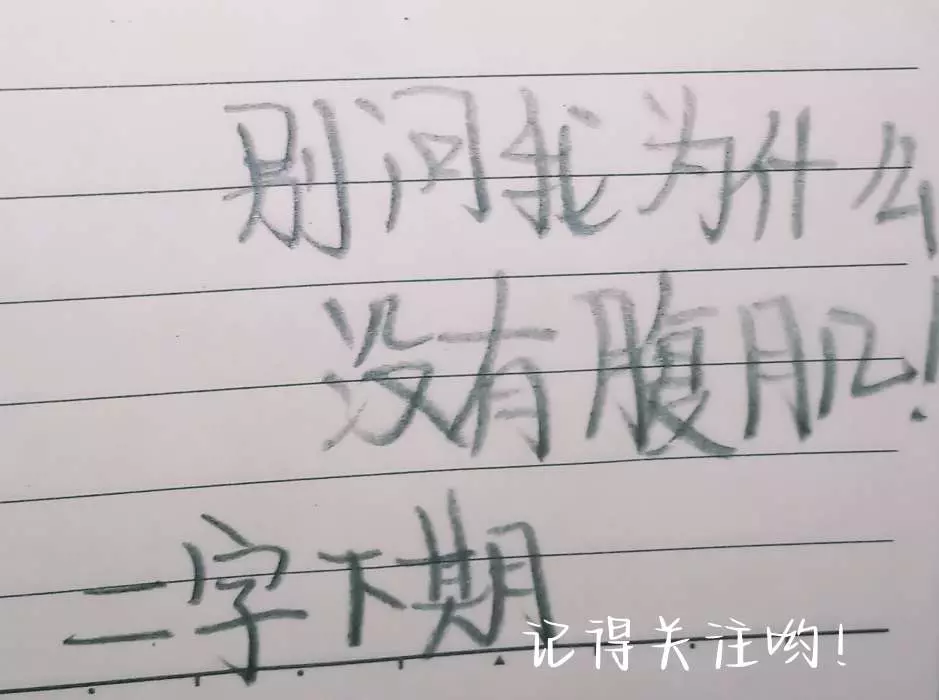 别问我为什么
没有腹肌!
二字下期
记得关注哟!